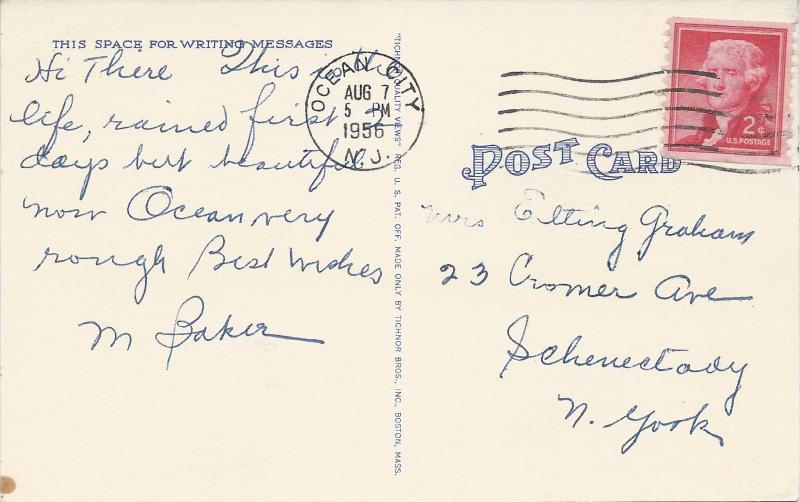 THIS SPACE FOR WRITING MESSAGES
Hi There This is the
life, rained first 2
days but beautiful
now Ocean very
rough Best Wishes
M Baker
"TICHNOR QUALITY VIEWS" REG. U. S. PAT. OFF. MADE ONLY BY TICHNOR BROS., INC., BOSTON, MASS.
OCEAN CITY
AUG 7
5 PM
1956
N.J.
2¢
U.S. POSTAGE
POST CARD
Mrs Elting Graham
23 Cromer Ave
Schenectady
N. York